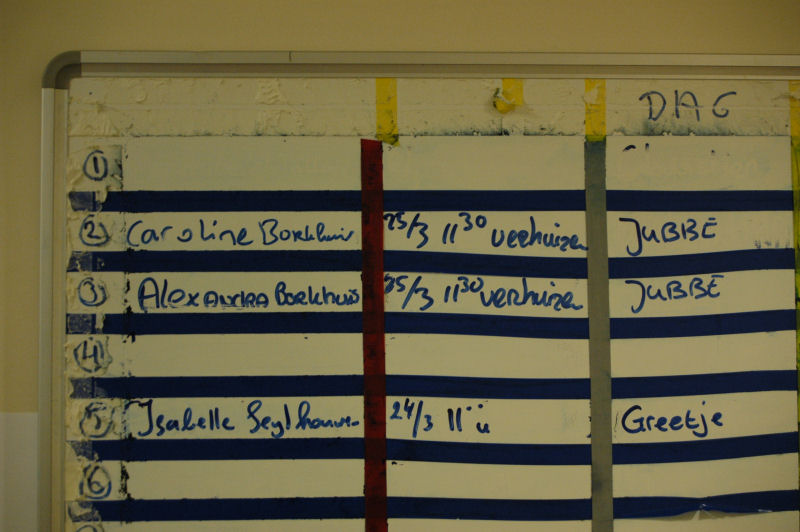 DAG
1
2 Caroline Borkhuis 25/3 11³⁰ verhuizen JUBBE
3 ALEXANDRA Borkhuis 25/3 11³⁰ verhuizen JUBBE
4
5 Isabelle 24/3 11 ü Greetje
6